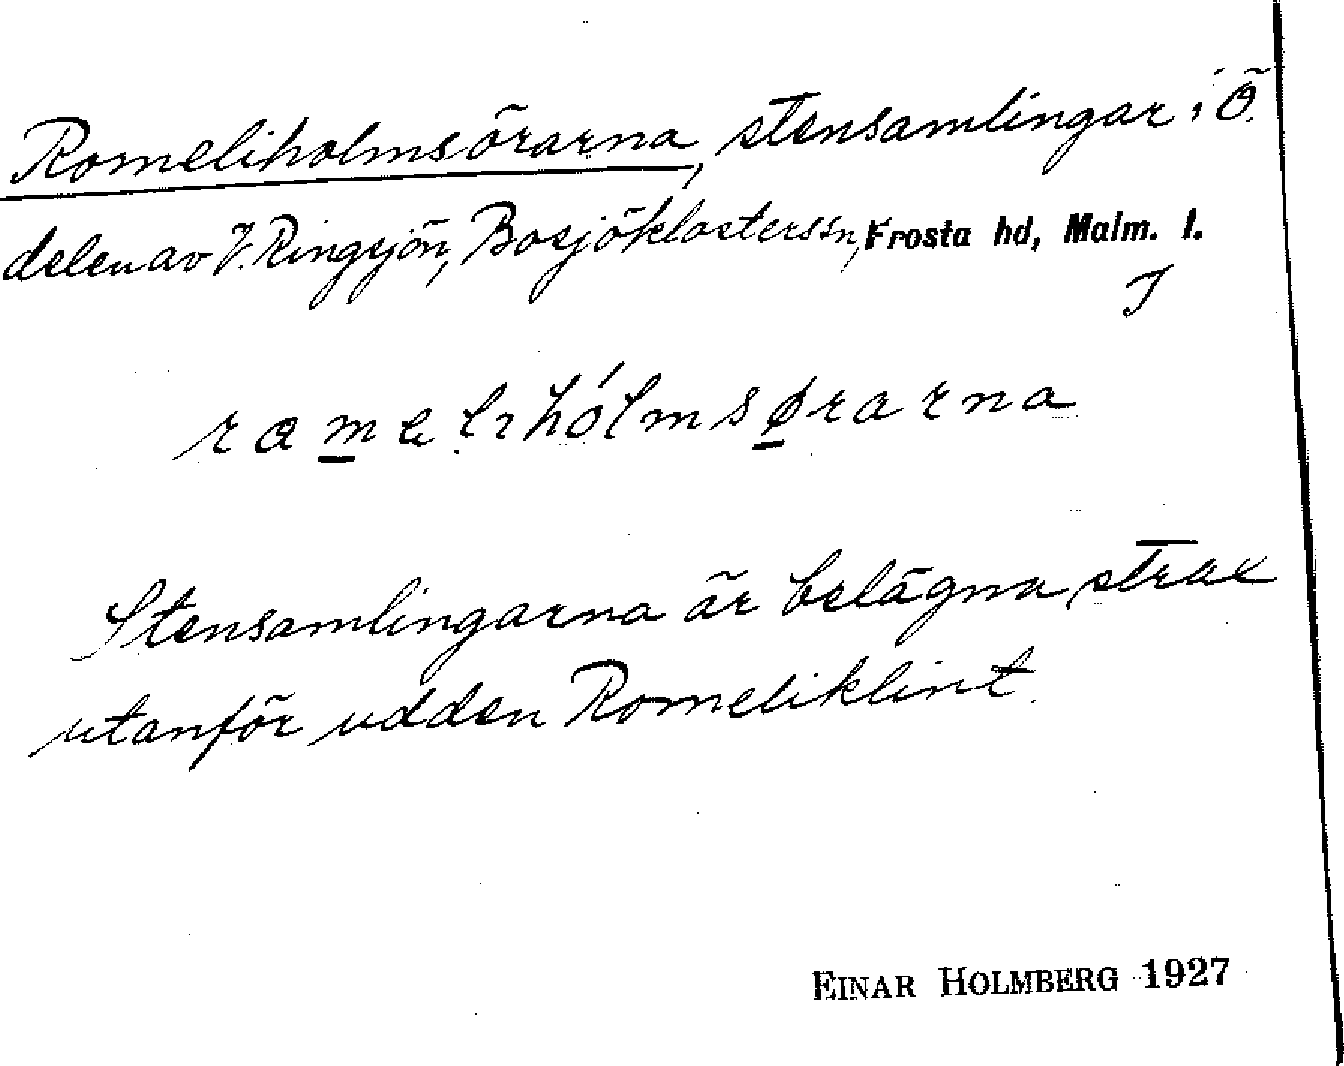 Romeliholmsörarna, stensamlingar i Ö.
delen av V. Ringsjön, Bosjöklosters sn, Frosta hd, Malm. l.
J
Stensamlingarna är belägna strax
utanför udden Romeliklint.
EINAR HOLMBERG 1927